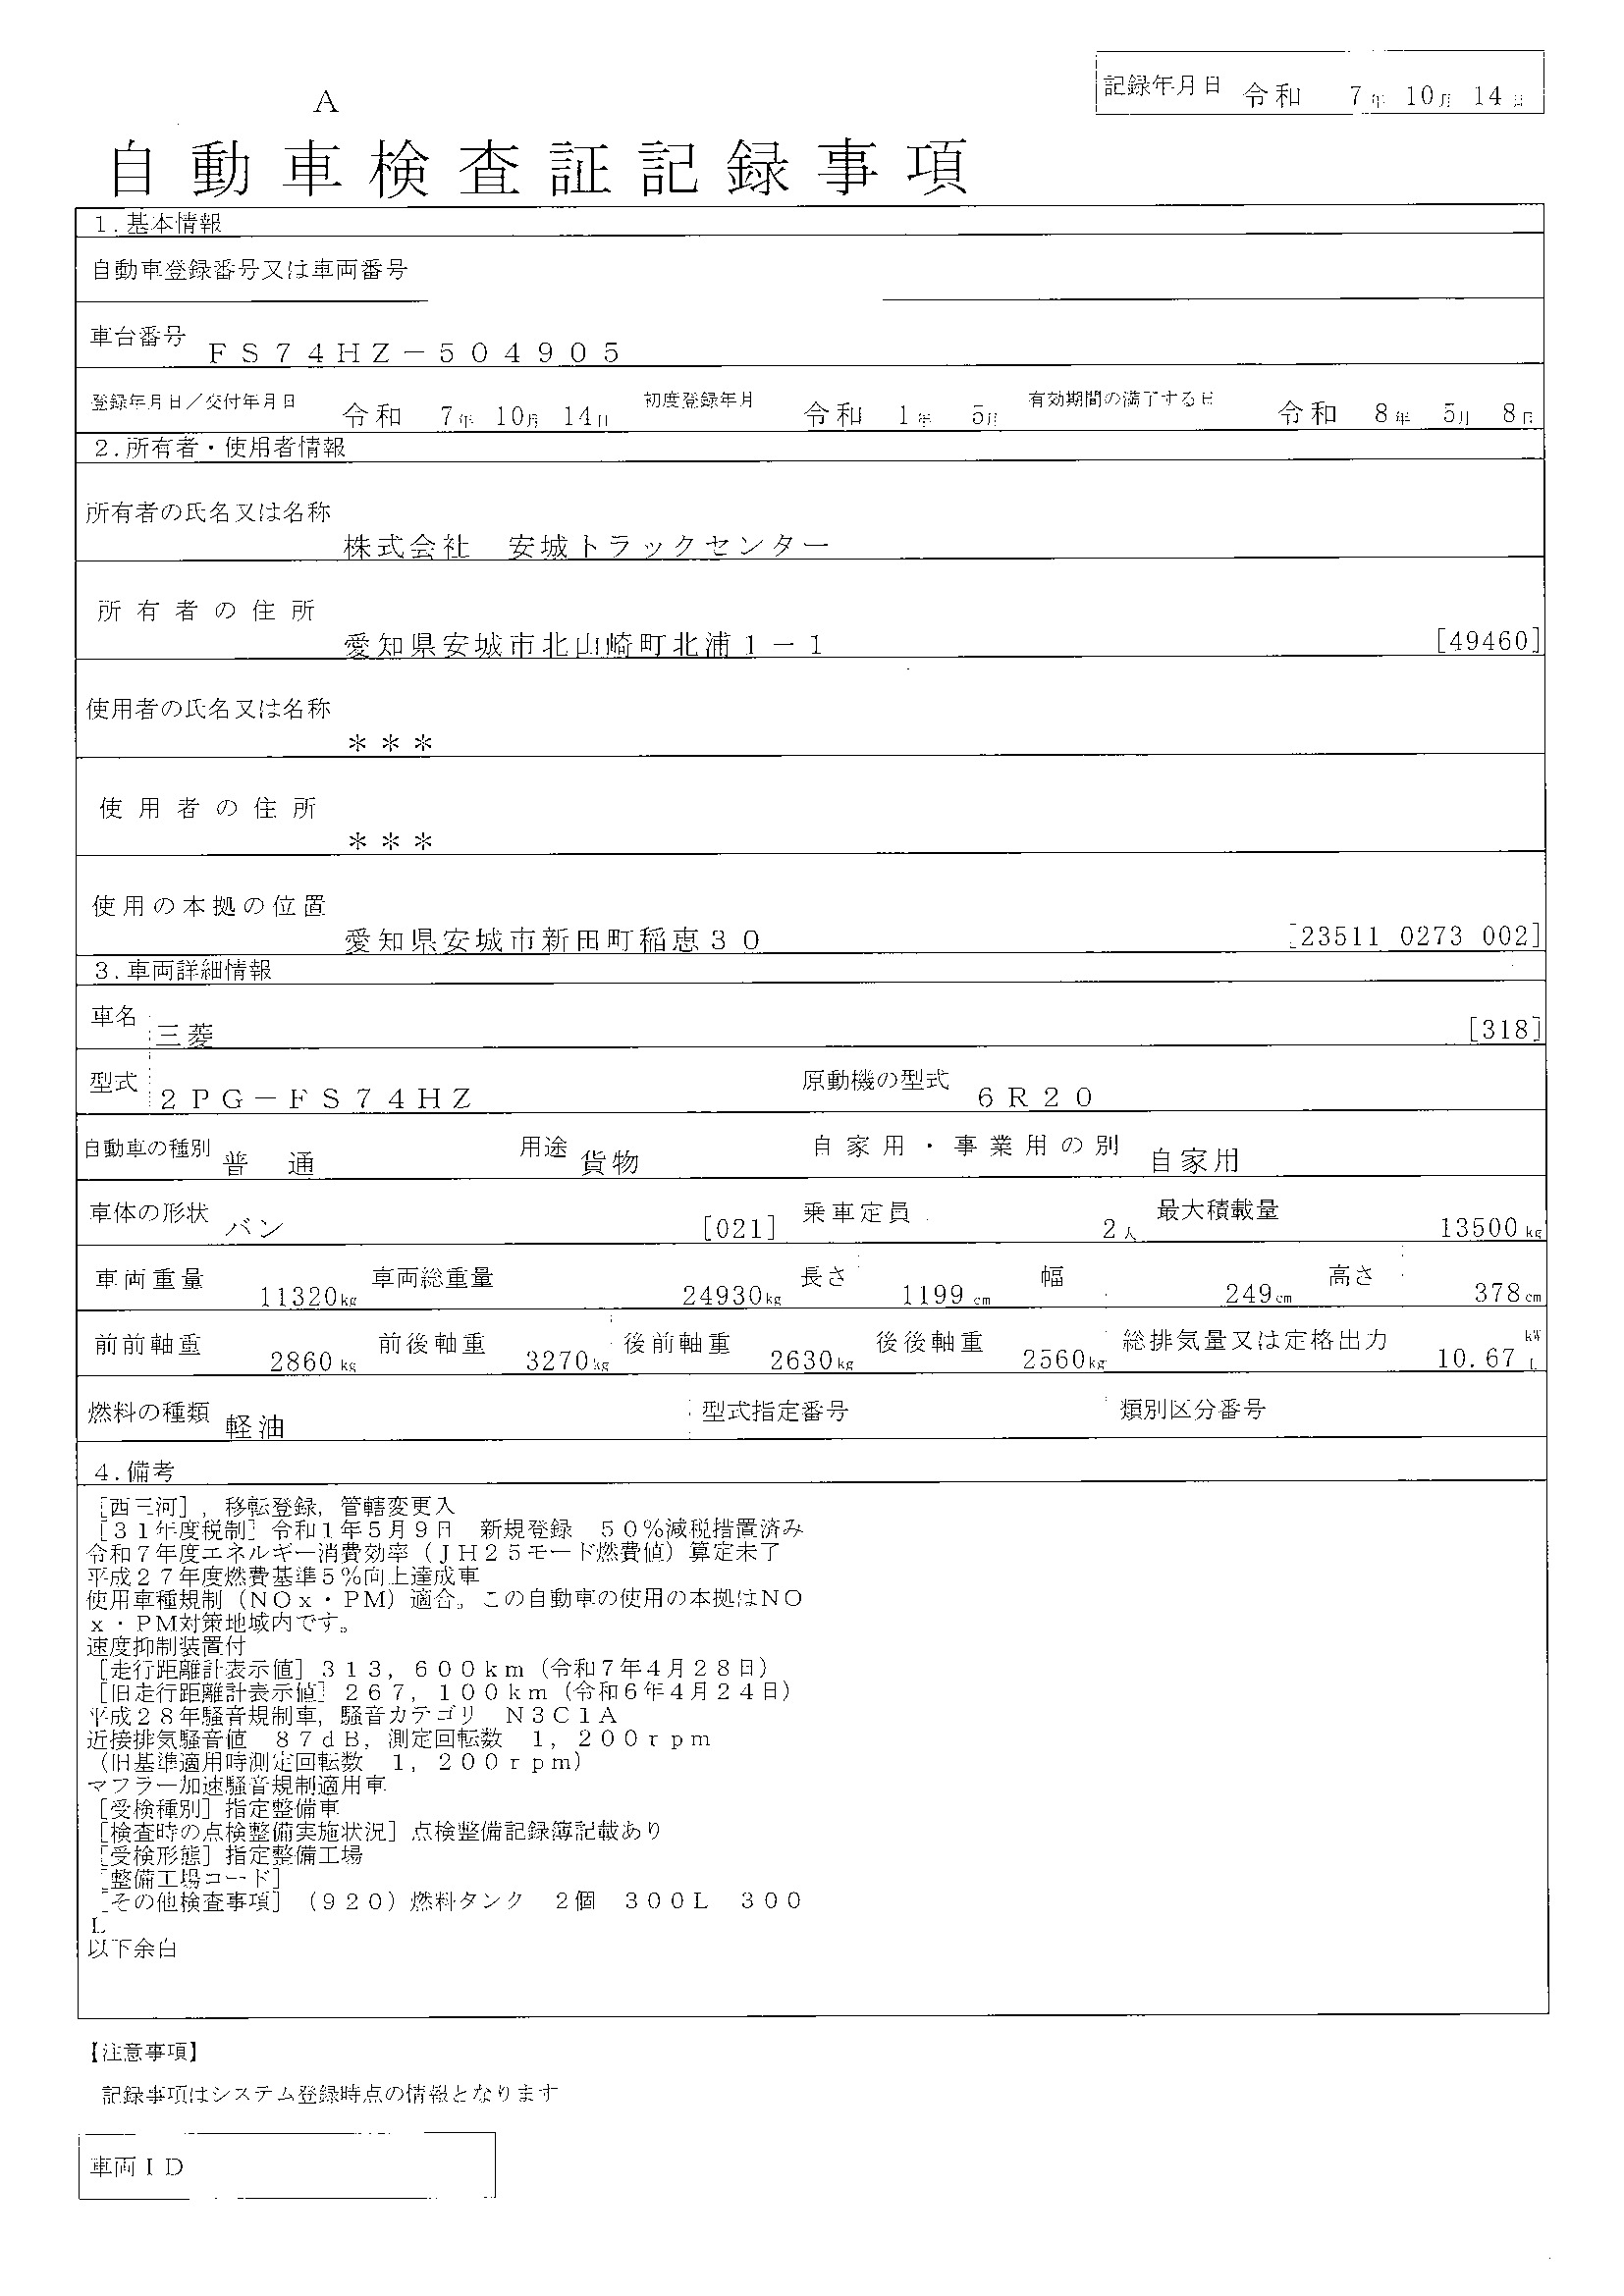 記録年月日 令和 7年 10月 14日
A
自動車検査証記録事項
1.基本情報
自動車登録番号又は車両番号
車台番号 FS74HZ-504905
登録年月日/交付年月日 令和 7年 10月 14日 初度登録年月 令和 1年 5月 有効期間の満了する日 令和 8年 5月 8日
2.所有者・使用者情報
所有者の氏名又は名称
株式会社 安城トラックセンター
所有者の住所
愛知県安城市北山崎町北浦1-1 [49460]
使用者の氏名又は名称
***
使用者の住所
***
使用の本拠の位置
愛知県安城市新田町稲恵30 [23511 0273 002]
3.車両詳細情報
車名 三菱 [318]
型式 2PG-FS74HZ 原動機の型式 6R20
自動車の種別 普 通 用途 貨物 自家用・事業用の別 自家用
車体の形状 バン [021] 乗車定員 2人 最大積載量 13500kg
車両重量 11320kg 車両総重量 24930kg 長さ 1199cm 幅 249cm 高さ 378cm
前前軸重 2860kg 前後軸重 3270kg 後前軸重 2630kg 後後軸重 2560kg 総排気量又は定格出力 10.67 kW L
燃料の種類 軽油 型式指定番号 類別区分番号
4.備考
[西三河],移転登録,管轄変更入
[31年度税制]令和1年5月9日 新規登録 50%減税措置済み
令和7年度エネルギー消費効率(JH25モード燃費値)算定未了
平成27年度燃費基準5%向上達成車
使用車種規制(NOx・PM)適合。この自動車の使用の本拠はNO
x・PM対策地域内です。
速度抑制装置付
[走行距離計表示値]313,600km(令和7年4月28日)
[旧走行距離計表示値]267,100km(令和6年4月24日)
平成28年騒音規制車,騒音カテゴリ N3C1A
近接排気騒音値 87dB,測定回転数 1,200rpm
(旧基準適用時測定回転数 1,200rpm)
マフラー加速騒音規制適用車
[受検種別]指定整備車
[検査時の点検整備実施状況]点検整備記録簿記載あり
[受検形態]指定整備工場
[整備工場コード]
[その他検査事項](920)燃料タンク 2個 300L 300
L
以下余白
【注意事項】
記録事項はシステム登録時点の情報となります
車両ID